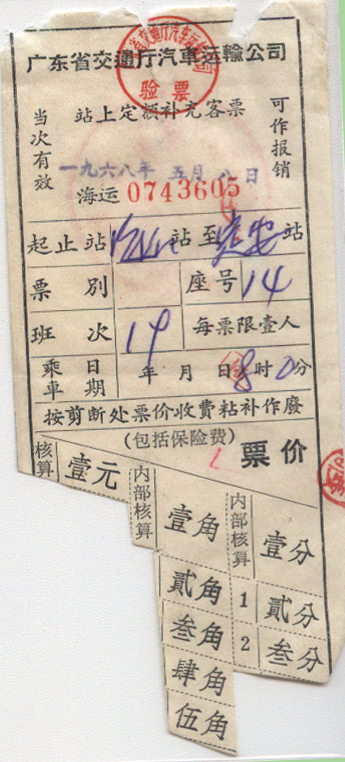 广东省交通厅汽車运輸公司
驗票
站上定額补充客票
当次有效
可作报销
一九六八年 五月 八日
海运 0743605
起止站 站至定安站
票別 座号 14
班次 19 每票限壹人
乘車日期 年 月 日 8时 0分
按剪断处票价收費粘补作廢
(包括保險費)
票价
核算 壹元 内部核算 壹角 内部核算 壹分
貳角 1 貳分
叁角 2 叁分
肆角
伍角